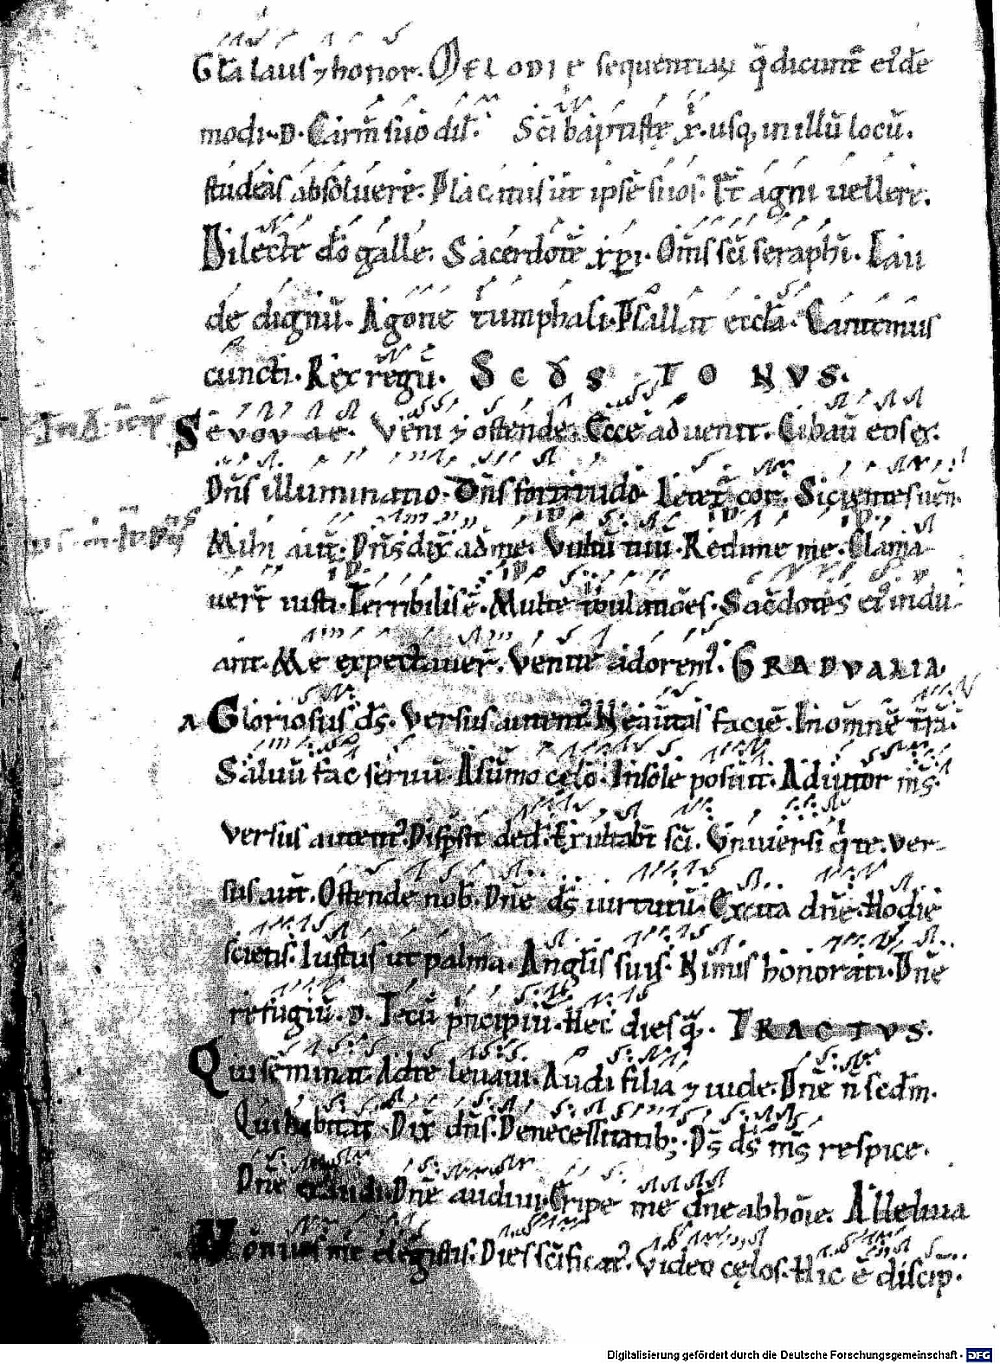 Gła laus ⁊ honor. MELODIE sequentiaꝝ q̄ dicunt̄ eiꝰde
modi. D. Carm̄ suo dil̄. Sc̄i baptiste x̄. usq; in illū locū.
studeas absoluere. Placitus ut ipse suos. Et agni uellere.
Dilecte dō galle. Sacerdotē xp̄i. Om̄s sc̄i seraphī. Lau
de dignū. Agone tumphali. Psallat eccła. Cantemus
cuncti. Rex regū. SCDS TONVS.
Seuouae. Veni ⁊ ostende. Ecce aduenit. Cibau eos ex.
Dn̄s illuminatio. Dn̄s fortitudo. Letet̄ cor. Sicientes uen
Mihi aut̄. Dn̄s dix̄ ad me. Vultū tuū. Redime me. Clama
uer̄t iusti. Terribilis ē. Multe t̄bulationes. Sac̄dotes eiꝰ indu
ant. Me expectauer̄. Venite adorem'. GRADVALIA.
A Gloriosus ds̄. Versus autem. Ne auertas faciē. In omnē t̄rā.
Saluū fac seruū. A sūmo cęlo. In sole posuit. Adiutor m̄s.
versus autem. Disp̄sit ded. Exultab̄t sc̄i. Vniuersi q̄ te. ver-
sus aut̄. Ostende nob̄. Dn̄e ds̄ uirtutū. Excita dn̄e. Hodie
scietis. Iustus ut palma. Angl̄is suis. Nimis honorati. Dn̄e
refugiū. D. Tecū p̄ncipiū. Hec dies q̄. TRACTVS.
Qui seminat. Ad te leuaui. Audi filia ⁊ uide. Dn̄e n̄ sed̄m.
Qui habitat. Dix̄ dn̄s. De necessitatib;. Ds̄ ds̄ m̄s respice.
Dn̄e exaudi. Dn̄e audiui. Eripe me dn̄e ab hoīe. Alleluia
Non uos me elegistis. Dies sc̄ificat'. Video cęlos. Hic ē discip̄.
Digitalisierung gefördert durch die Deutsche Forschungsgemeinschaft - DFG